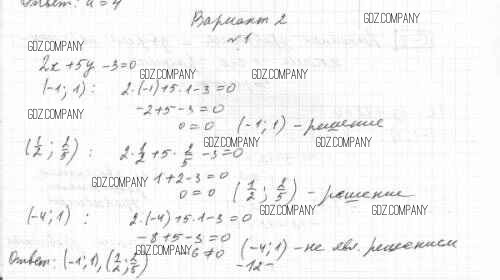 Ответ: a = 4
Вариант 2
GDZ.COMPANY
№1
GDZ.COMPANY
2x + 5y - 3 = 0
GDZ.COMPANY GDZ.COMPANY
(-1; 1) : 2·(-1)+5·1-3=0
-2+5-3=0
GDZ.COMPANY
0=0 (-1; 1) - решение
GDZ.COMPANY GDZ.COMPANY
(1/2; 2/5) : 2·1/2+5·2/5-3=0
1+2-3=0
GDZ.COMPANY
0=0 (1/2; 2/5) - решение
GDZ.COMPANY GDZ.COMPANY
(-4; 1) : 2·(-4)+5·1-3=0
-8+5-3=0
GDZ.COMPANY
-6≠0 (-4; 1) - не явл. решением
Ответ: (-1; 1),
-12-